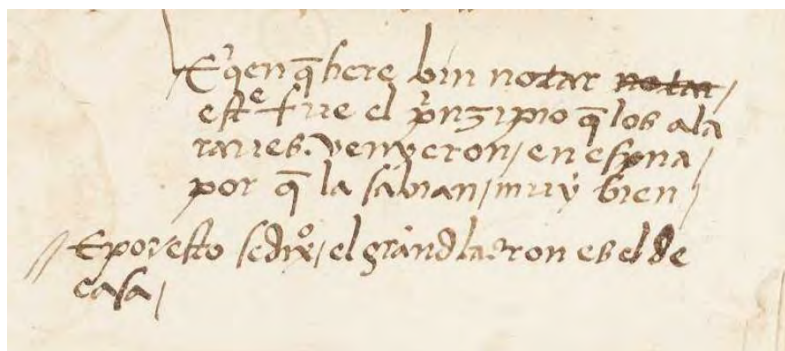 E qen q̄ bere bin notar notar /
este fue el pͥnzipio q̄ los ala
raues. venyeron / en espna /
por q̄ la sabian / muy bien /
// E por esto se dixº / el grand ladron es el de
casa /